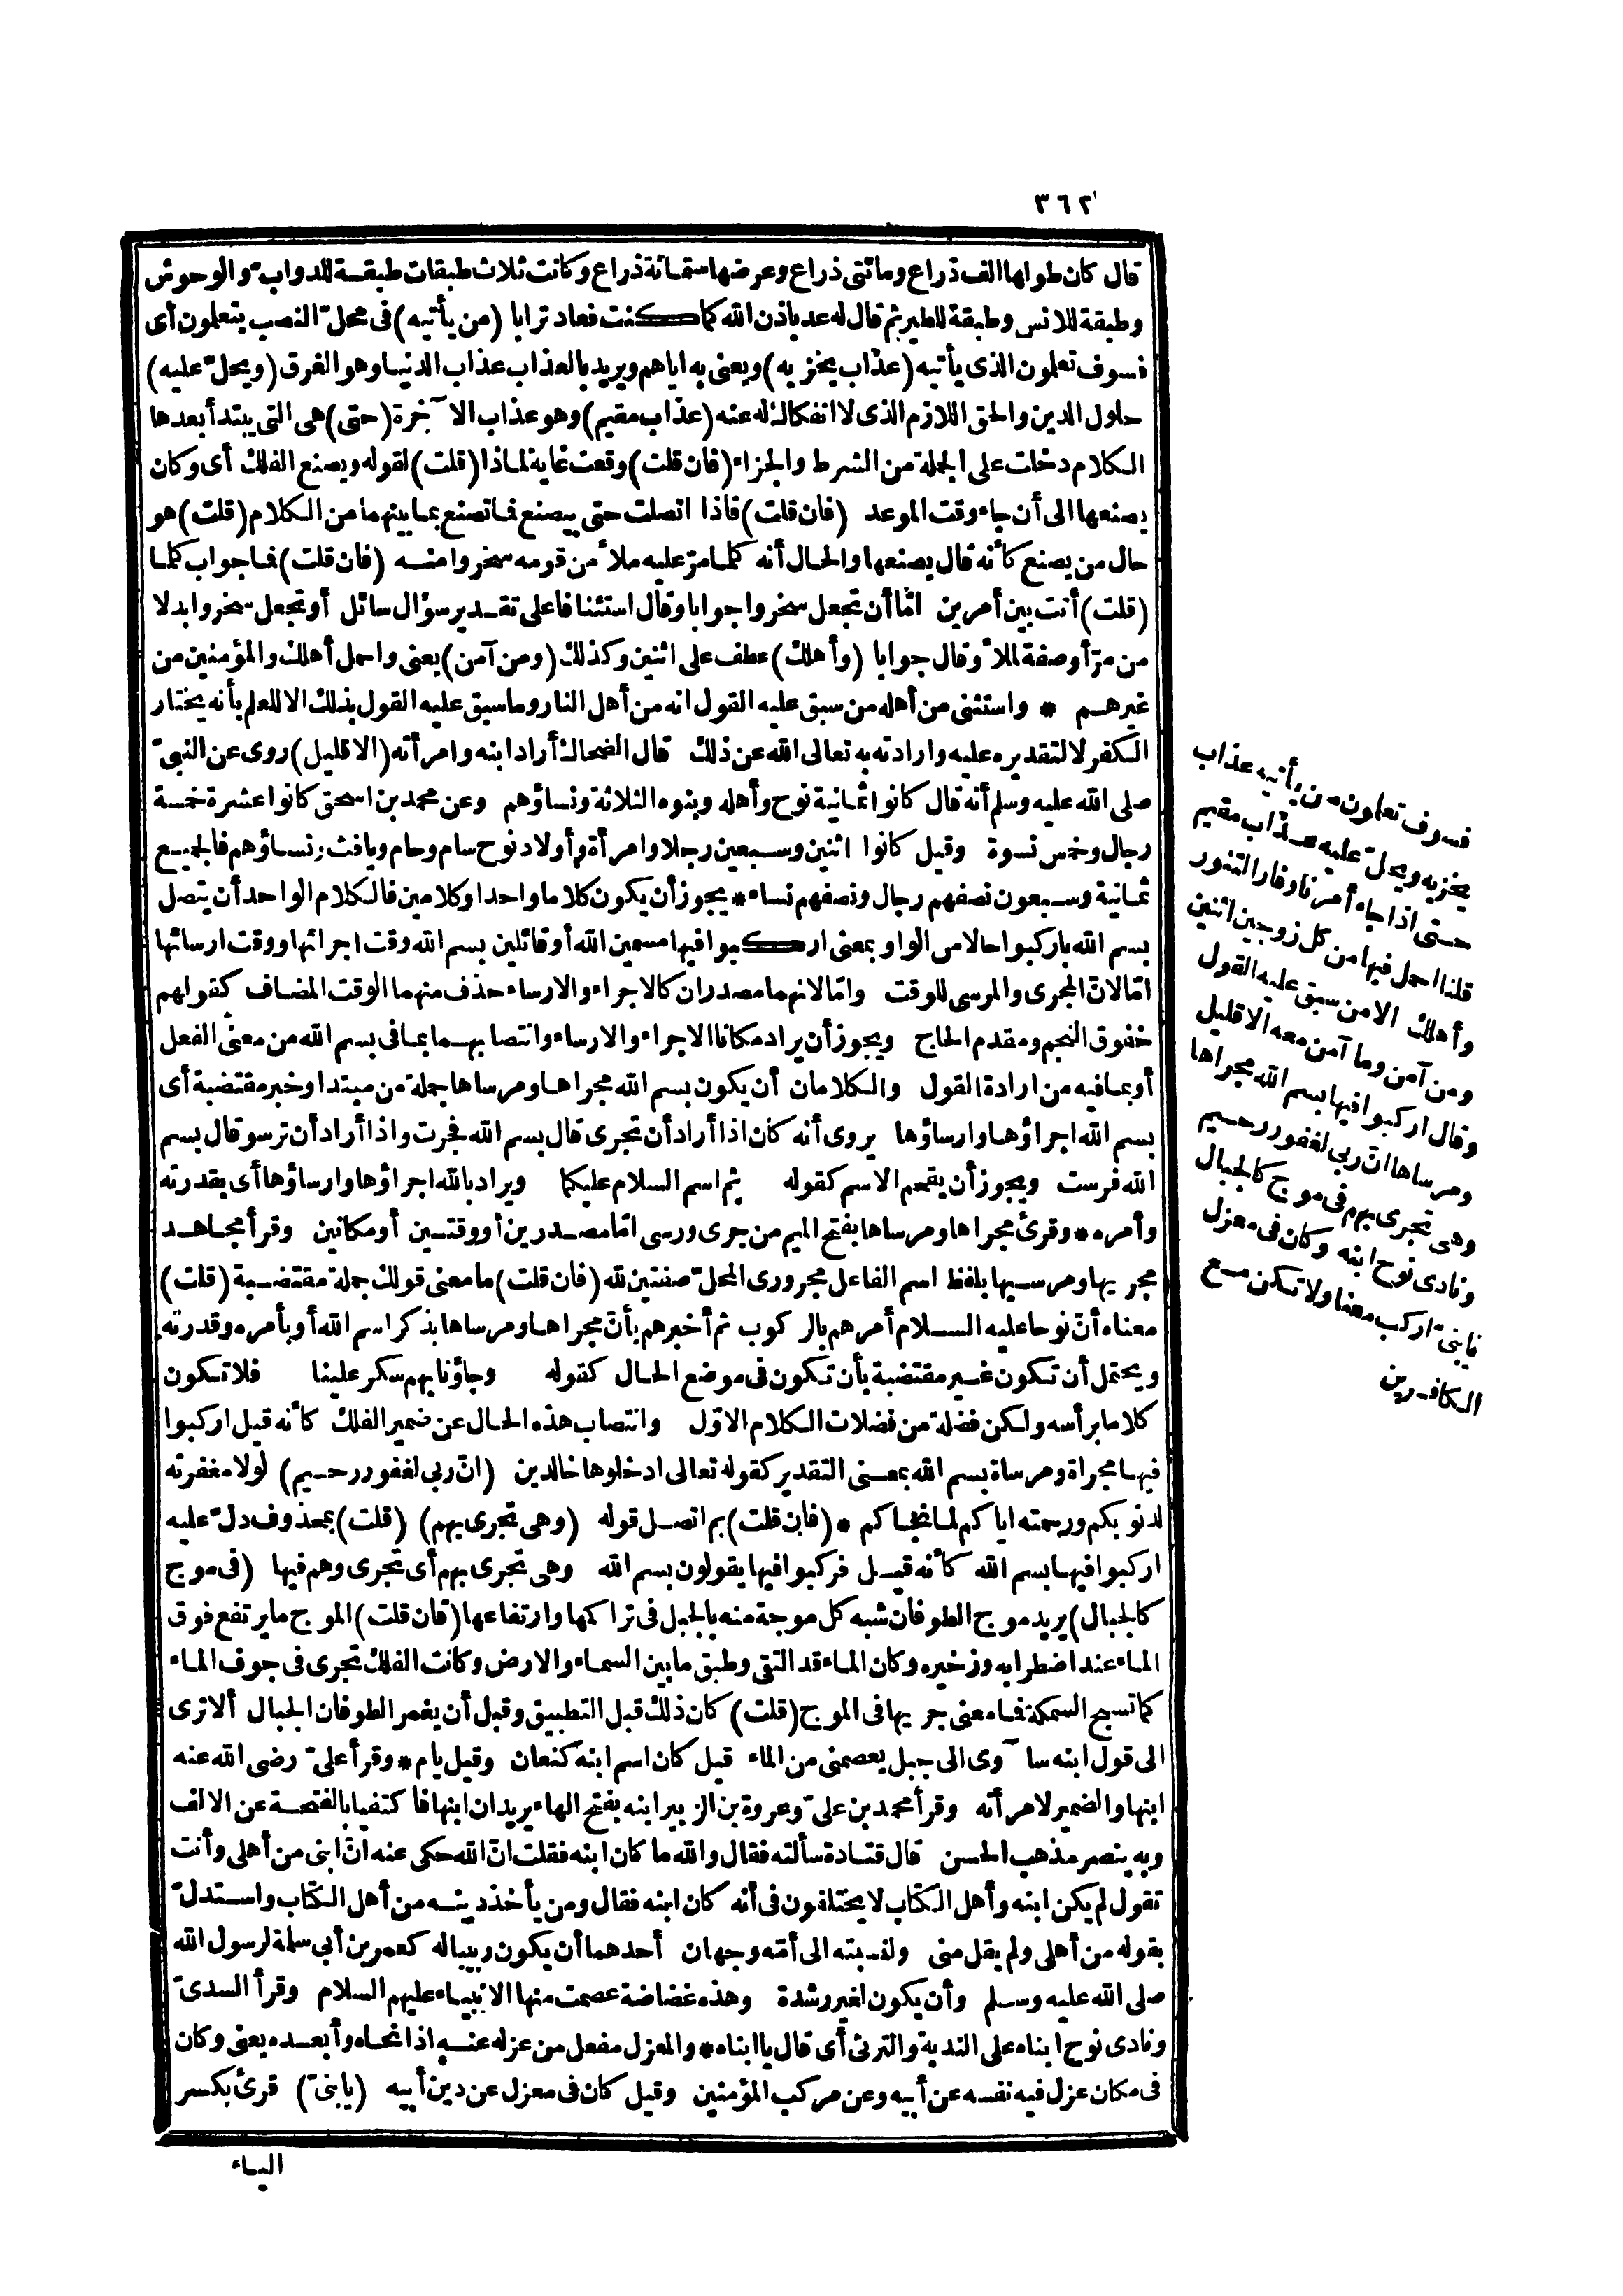 ٣٦٢
قال كان طولها ألف ذراع ومائتى ذراع وعرضها ستمائة ذراع وكانت ثلاث طبقات طبقة للدواب والوحوش
وطبقة للانس وطبقة للطير ثم قال له عد باذن الله كما كنت فعاد ترابا (من يأتيه) فى محل النصب بتعلمون أى
فسوف تعلمون الذى يأتيه (عذاب يخزيه) ويعنى به اياهم ويريد بالعذاب عذاب الدنيا وهو الغرق (ويحلّ عليه)
حلول الدين والحق اللازم الذى لا انفكاك له عنه (عذاب مقيم) وهو عذاب الآخرة (حتى) هى التى يبتدأ بعدها
الكلام دخلت على الجملة من الشرط والجزاء (فان قلت) وقعت غاية لماذا (قلت) لقوله ويصنع الفلك أى وكان
يصنعها الى أن جاء وقت الموعد (فان قلت) فاذا اتصلت حتى بيصنع فما تصنع بما بينهما من الكلام (قلت) هو
حال من يصنع كأنه قال يصنعها والحال أنه كلما مرّ عليه ملأ من قومه سخروا منه (فان قلت) فما جواب كلما
(قلت) أنت بين أمرين امّا أن تجعل سخروا جوابا وقال استئنافا على تقدير سؤال سائل أو تجعل سخروا بدلا
من مرّ أو صفة لملأ وقال جوابا (وأهلك) عطف على اثنين وكذلك (ومن آمن) يعنى واحمل أهلك والمؤمنين من
غيرهم * واستثنى من أهله من سبق عليه القول انه من أهل النار وما سبق عليه القول بذلك الا للعلم بأنه يختار
الكفر لا لتقديره عليه وارادته به تعالى الله عن ذلك قال الضحاك أراد ابنه وامرأته (الا قليل) روى عن النبىّ
صلى الله عليه وسلم أنه قال كانوا ثمانية نوح وأهله وبنوه الثلاثة ونساؤهم وعن محمد بن اسحق كانوا عشرة خمسة
رجال وخمس نسوة وقيل كانوا اثنين وسبعين رجلا وامرأة وأولاد نوح سام وحام ويافث ونساؤهم فالجميع
ثمانية وسبعون نصفهم رجال ونصفهم نساء * يجوز أن يكون كلاما واحدا وكلامين فالكلام الواحد أن يتصل
بسم الله باركبوا حالا من الواو بمعنى اركبوا فيها مسمين الله أو قائلين بسم الله وقت اجرائها ووقت ارسائها
امّا لانّ المجرى والمرسى للوقت وامّا لانهما مصدران كالاجراء والارساء حذف منهما الوقت المضاف كقولهم
خفوق النجم ومقدم الحاج ويجوز أن يراد مكانا الاجراء والارساء وانتصابهما بما فى بسم الله من معنى الفعل
أو بما فيه من ارادة القول والكلامان أن يكون بسم الله مجراها ومرساها جملة من مبتدا وخبر مقتضبة أى
بسم الله اجراؤها وارساؤها يروى أنه كان اذا أراد أن تجرى قال بسم الله فجرت واذا أراد أن ترسو قال بسم
الله فرست ويجوز أن يقحم الاسم كقوله ثم اسم السلام عليكما ويراد بالله اجراؤها وارساؤها أى بقدرته
وأمره * وقرئ مجراها ومرساها بفتح الميم من جرى ورسى امّا مصدرين أو وقتين أو مكانين وقرأ مجاهد
مجريها ومرسيها بلفظ اسم الفاعل مجرورى المحلّ صفتين لله (فان قلت) ما معنى قولك جملة مقتضبة (قلت)
معناه أنّ نوحا عليه السلام أمرهم بالركوب ثم أخبرهم بأنّ مجراها ومرساها بذكر اسم الله أو بأمره وقدرته
ويحتمل أن تكون غير مقتضبة بأن تكون فى موضع الحال كقوله وجاؤنا بهم سكر علينا فلا تكون
كلاما برأسه ولكن فضلة من فضلات الكلام الاوّل وانتصاب هذه الحال عن ضمير الفلك كأنه قيل اركبوا
فيها مجراة ومرساة بسم الله بمعنى التقدير كقوله تعالى ادخلوها خالدين (انّ ربى لغفور رحيم) لولا مغفرته
لذنوبكم ورحمته اياكم لما نجاكم * (فان قلت) بم اتصل قوله (وهى تجرى بهم) (قلت) بمحذوف دلّ عليه
اركبوا فيها بسم الله كأنه قيل فركبوا فيها يقولون بسم الله وهى تجرى بهم أى تجرى وهم فيها (فى موج
كالجبال) يريد موج الطوفان شبه كل موجة منه بالجبل فى تراكمها وارتفاعها (فان قلت) الموج ما يرتفع فوق
الماء عند اضطرابه وزخيره وكان الماء قد التقى وطبق ما بين السماء والارض وكانت الفلك تجرى فى جوف الماء
كما تسبح السمكة فما معنى جريها فى الموج (قلت) كان ذلك قبل التطبيق وقبل أن يغمر الطوفان الجبال ألا ترى
الى قول ابنه سآوى الى جبل يعصمنى من الماء قيل كان اسم ابنه كنعان وقيل يام * وقرأ علىّ رضى الله عنه
ابنها والضمير لامرأته وقرأ محمد بن علىّ وعروة بن الزبير ابنه بفتح الهاء يريدان ابنها فاكتفيا بالفتحة عن الالف
وبه ينصر مذهب الحسن قال قتادة سألته فقال والله ما كان ابنه فقلت انّ الله حكى عنه انّ ابنى من أهلى وأنت
تقول لم يكن ابنه وأهل الكتاب لا يختلفون فى أنه كان ابنه فقال ومن يأخذ دينه من أهل الكتاب واستدلّ
بقوله من أهلى ولم يقل منى ولنسبته الى أمّه وجهان أحدهما أن يكون ربيبا له كعمر بن أبى سلمة لرسول الله
صلى الله عليه وسلم وأن يكون لغير رشدة وهذه غضاضة عصمت منها الانبياء عليهم السلام وقرأ السدىّ
ونادى نوح ابناه على الندبة والترثى أى قال يا ابناه * والمعزل مفعل من عزله عنه اذا نحاه وأبعده يعنى وكان
فى مكان عزل فيه نفسه عن أبيه وعن مركب المؤمنين وقيل كان فى معزل عن دين أبيه (يا بنىّ) قرئ بكسر
الياء
فسوف تعلمون من يأتيه عذاب
يخزيه ويحلّ عليه عذاب مقيم
حتى اذا جاء أمرنا وفار التنور
قلنا احمل فيها من كل زوجين اثنين
وأهلك الا من سبق عليه القول
ومن آمن وما آمن معه الا قليل
وقال اركبوا فيها بسم الله مجراها
ومرساها انّ ربى لغفور رحيم
وهى تجرى بهم فى موج كالجبال
ونادى نوح ابنه وكان فى معزل
يابنىّ اركب معنا ولا تكن مع
الكافرين